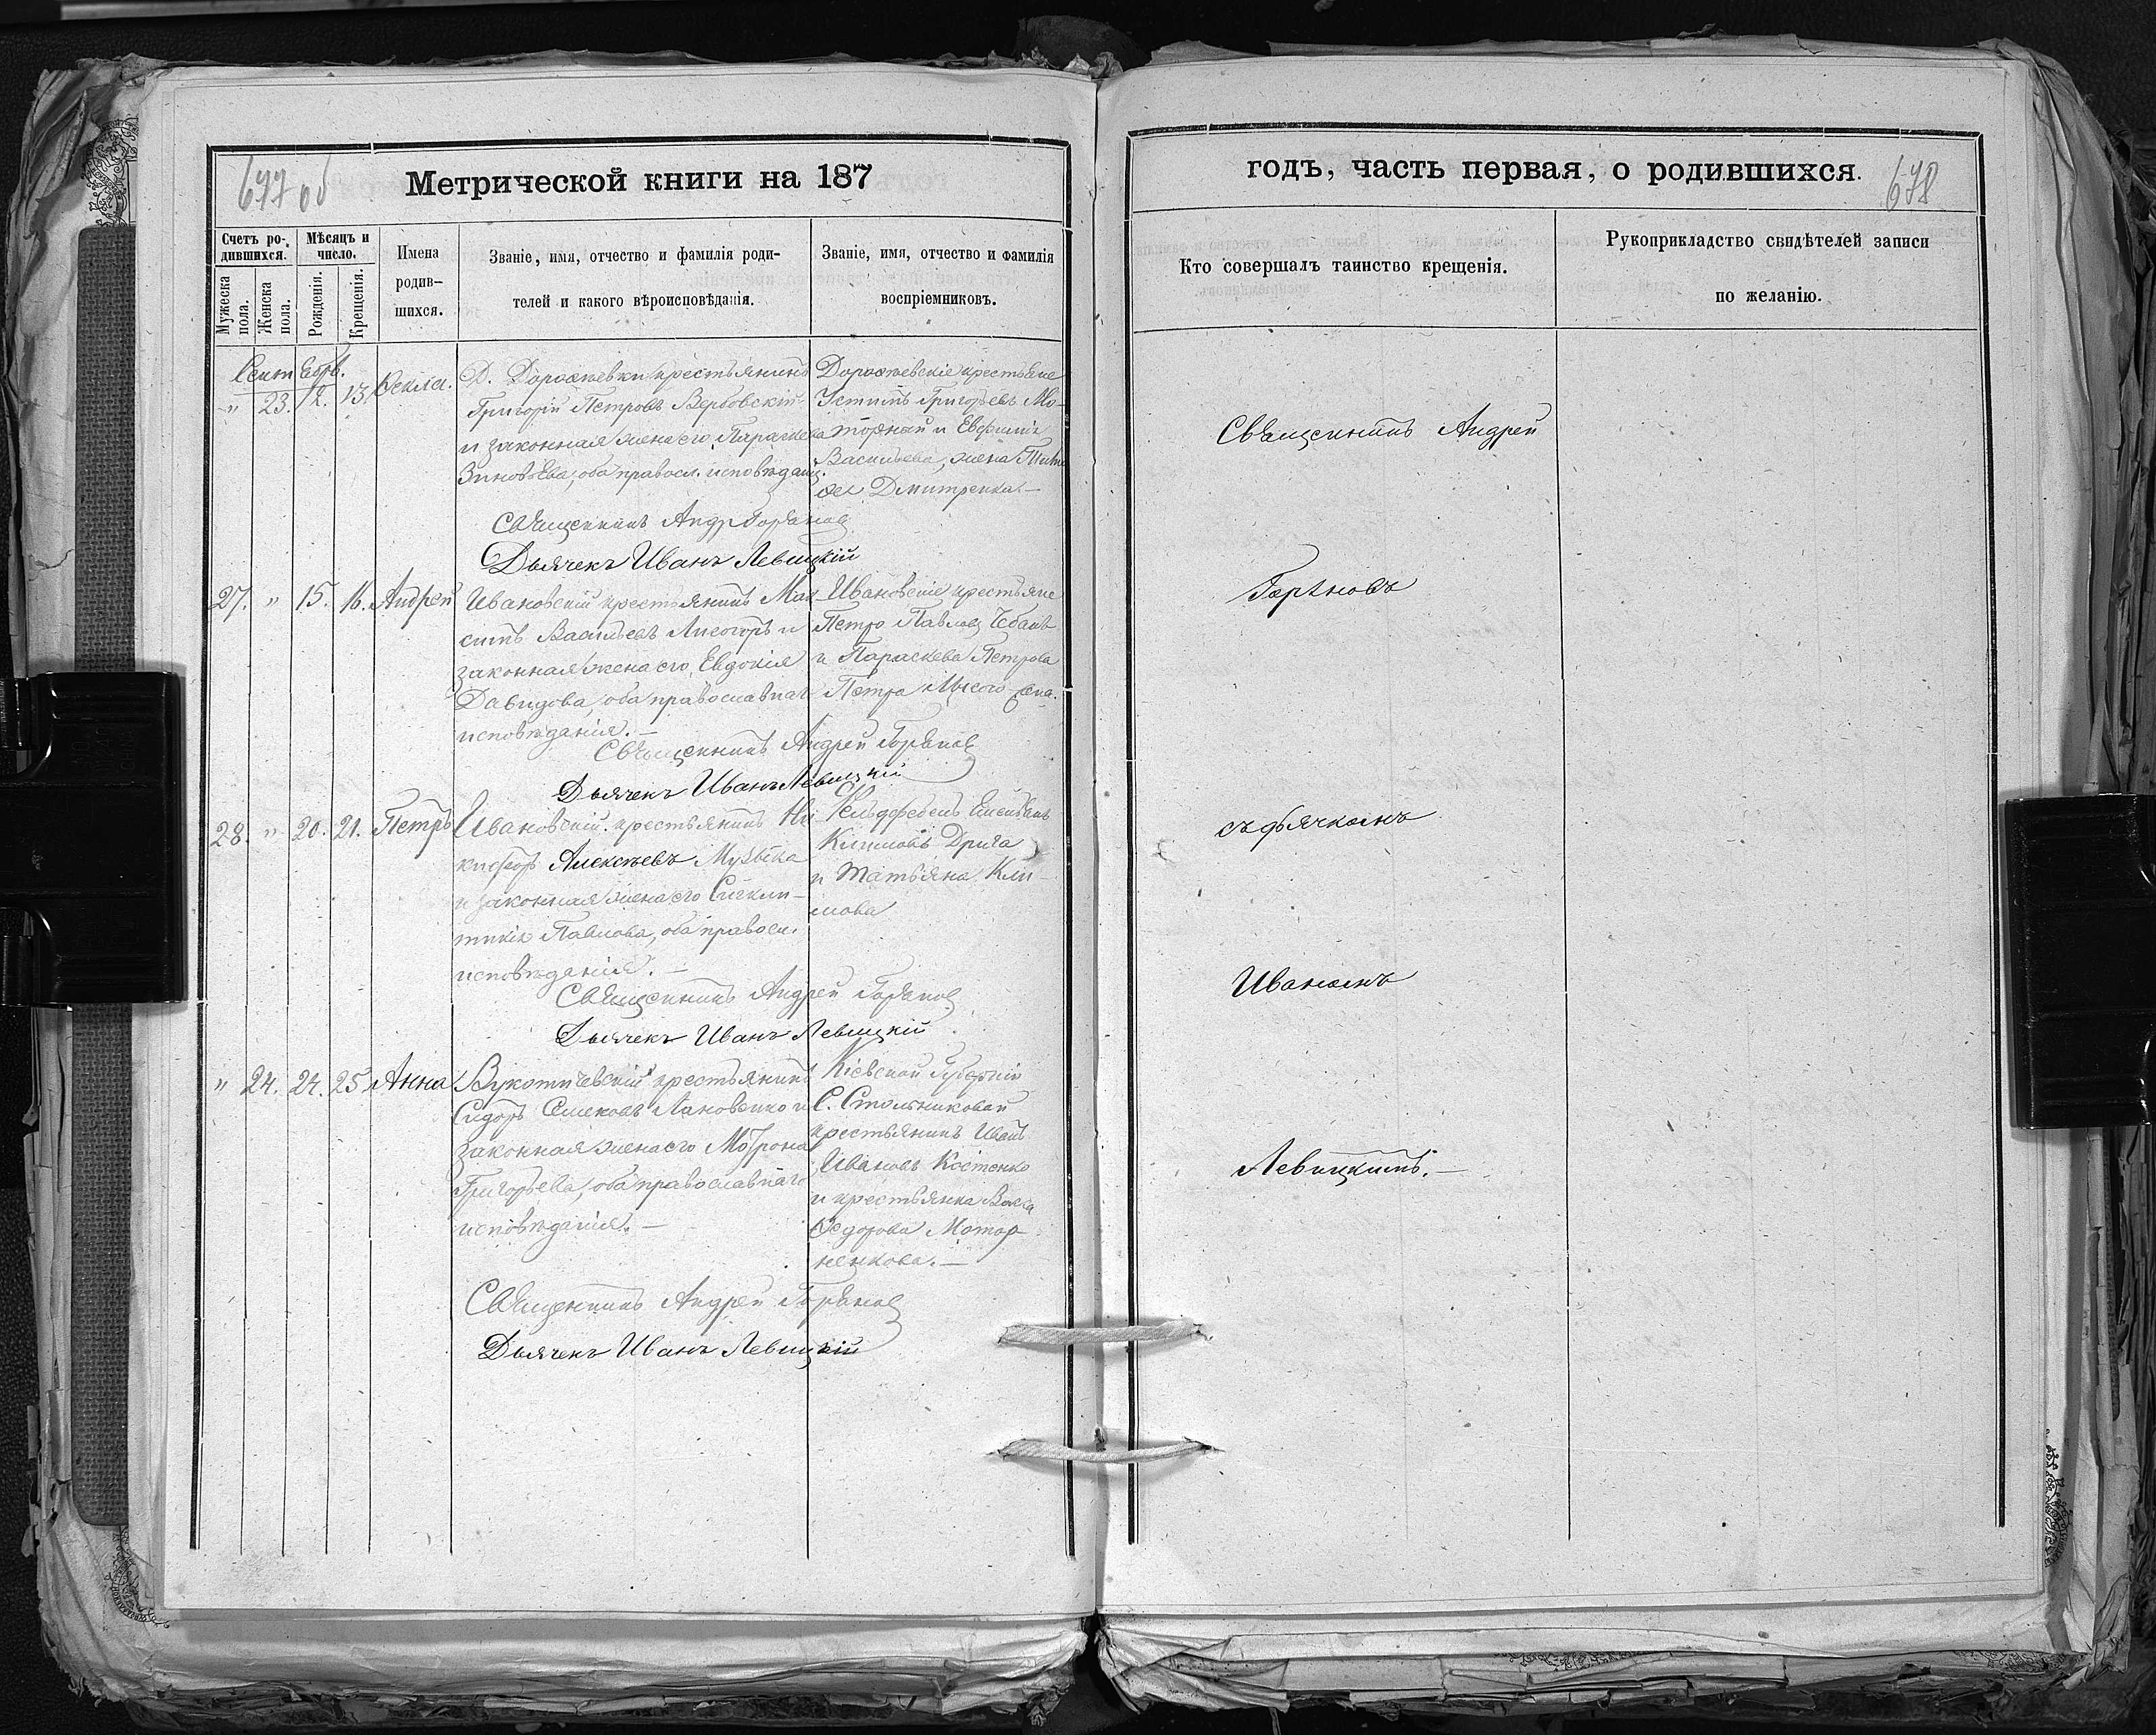 677 об
Метрической книги на 187
Счетъ ро-
дившихся.
Мѣсяцъ и
число.
Мужеска
пола.
Женска
пола.
Рожденія.
Крещенія.
Имена
родив-
шихся.
Званіе, имя, отчество и фамилія роди-
телей и какого вѣроисповѣданія.
Званіе, имя, отчество и фамилія
воспріемниковъ.
Сентябрь.
" 23. 12. 13. Ѳекла.
Д. Дорожевки крестьянинъ
Григорій Петровъ Вербовскій
и законная жена его Параскева
Зиновьева, оба правосл. исповѣдан.
Дорожевскіе крестьяне
Устинъ Григорьевъ Мо-
торный и Евфимія
Васильева, жена
Дмитренка.—
Священникъ Андр Горѣнов
Дьячекъ Иванъ Левицкій
27. " 15. 16. Андрей
Ивановскій крестьянинъ Мак-
симъ Васильевъ Лисогоръ и
законная жена его Евдокія
Давидова, оба православнаго
исповѣданія.—
Ивановскіе крестьяне
Петро Павловъ Чебанъ
и Параскева Петрова
Петра
Священникъ Андрей Горѣнов
Дьячекъ Иванъ Левицкій
28. " 20. 21. Петръ
Ивановскій крестьянинъ Ни-
кифоръ Алексѣевъ Музыка
и законная жена его Сигкли-
тикія Павлова, оба правосл.
исповѣданія.—
Климовъ Дрига
и Татьяна Кли-
мова
Священникъ Андрей Горѣнов
Дьячекъ Иванъ Левицкій
" 24. 24. 25. Анна
Вукотичевскій крестьянинъ
Сидоръ Семеновъ Лановенко и
законная жена его Мотрона
Григорьева, оба православнаго
исповѣданія.—
Кіевской Губерніи
С. Стольниковой
крестьянинъ Иванъ
Ивановъ Костенко
и крестьянка Васса
Ѳедорова Мотор-
ненкова.—
Священникъ Андрей Горѣнов
Дьячекъ Иванъ Левицкій
годъ, часть первая, о родившихся.
678
Кто совершалъ таинство крещенія.
Рукоприкладство свидѣтелей записи
по желанію.
Священникъ Андрей
Горѣновъ
съ дьячкомъ
Иваномъ
Левицкимъ.—